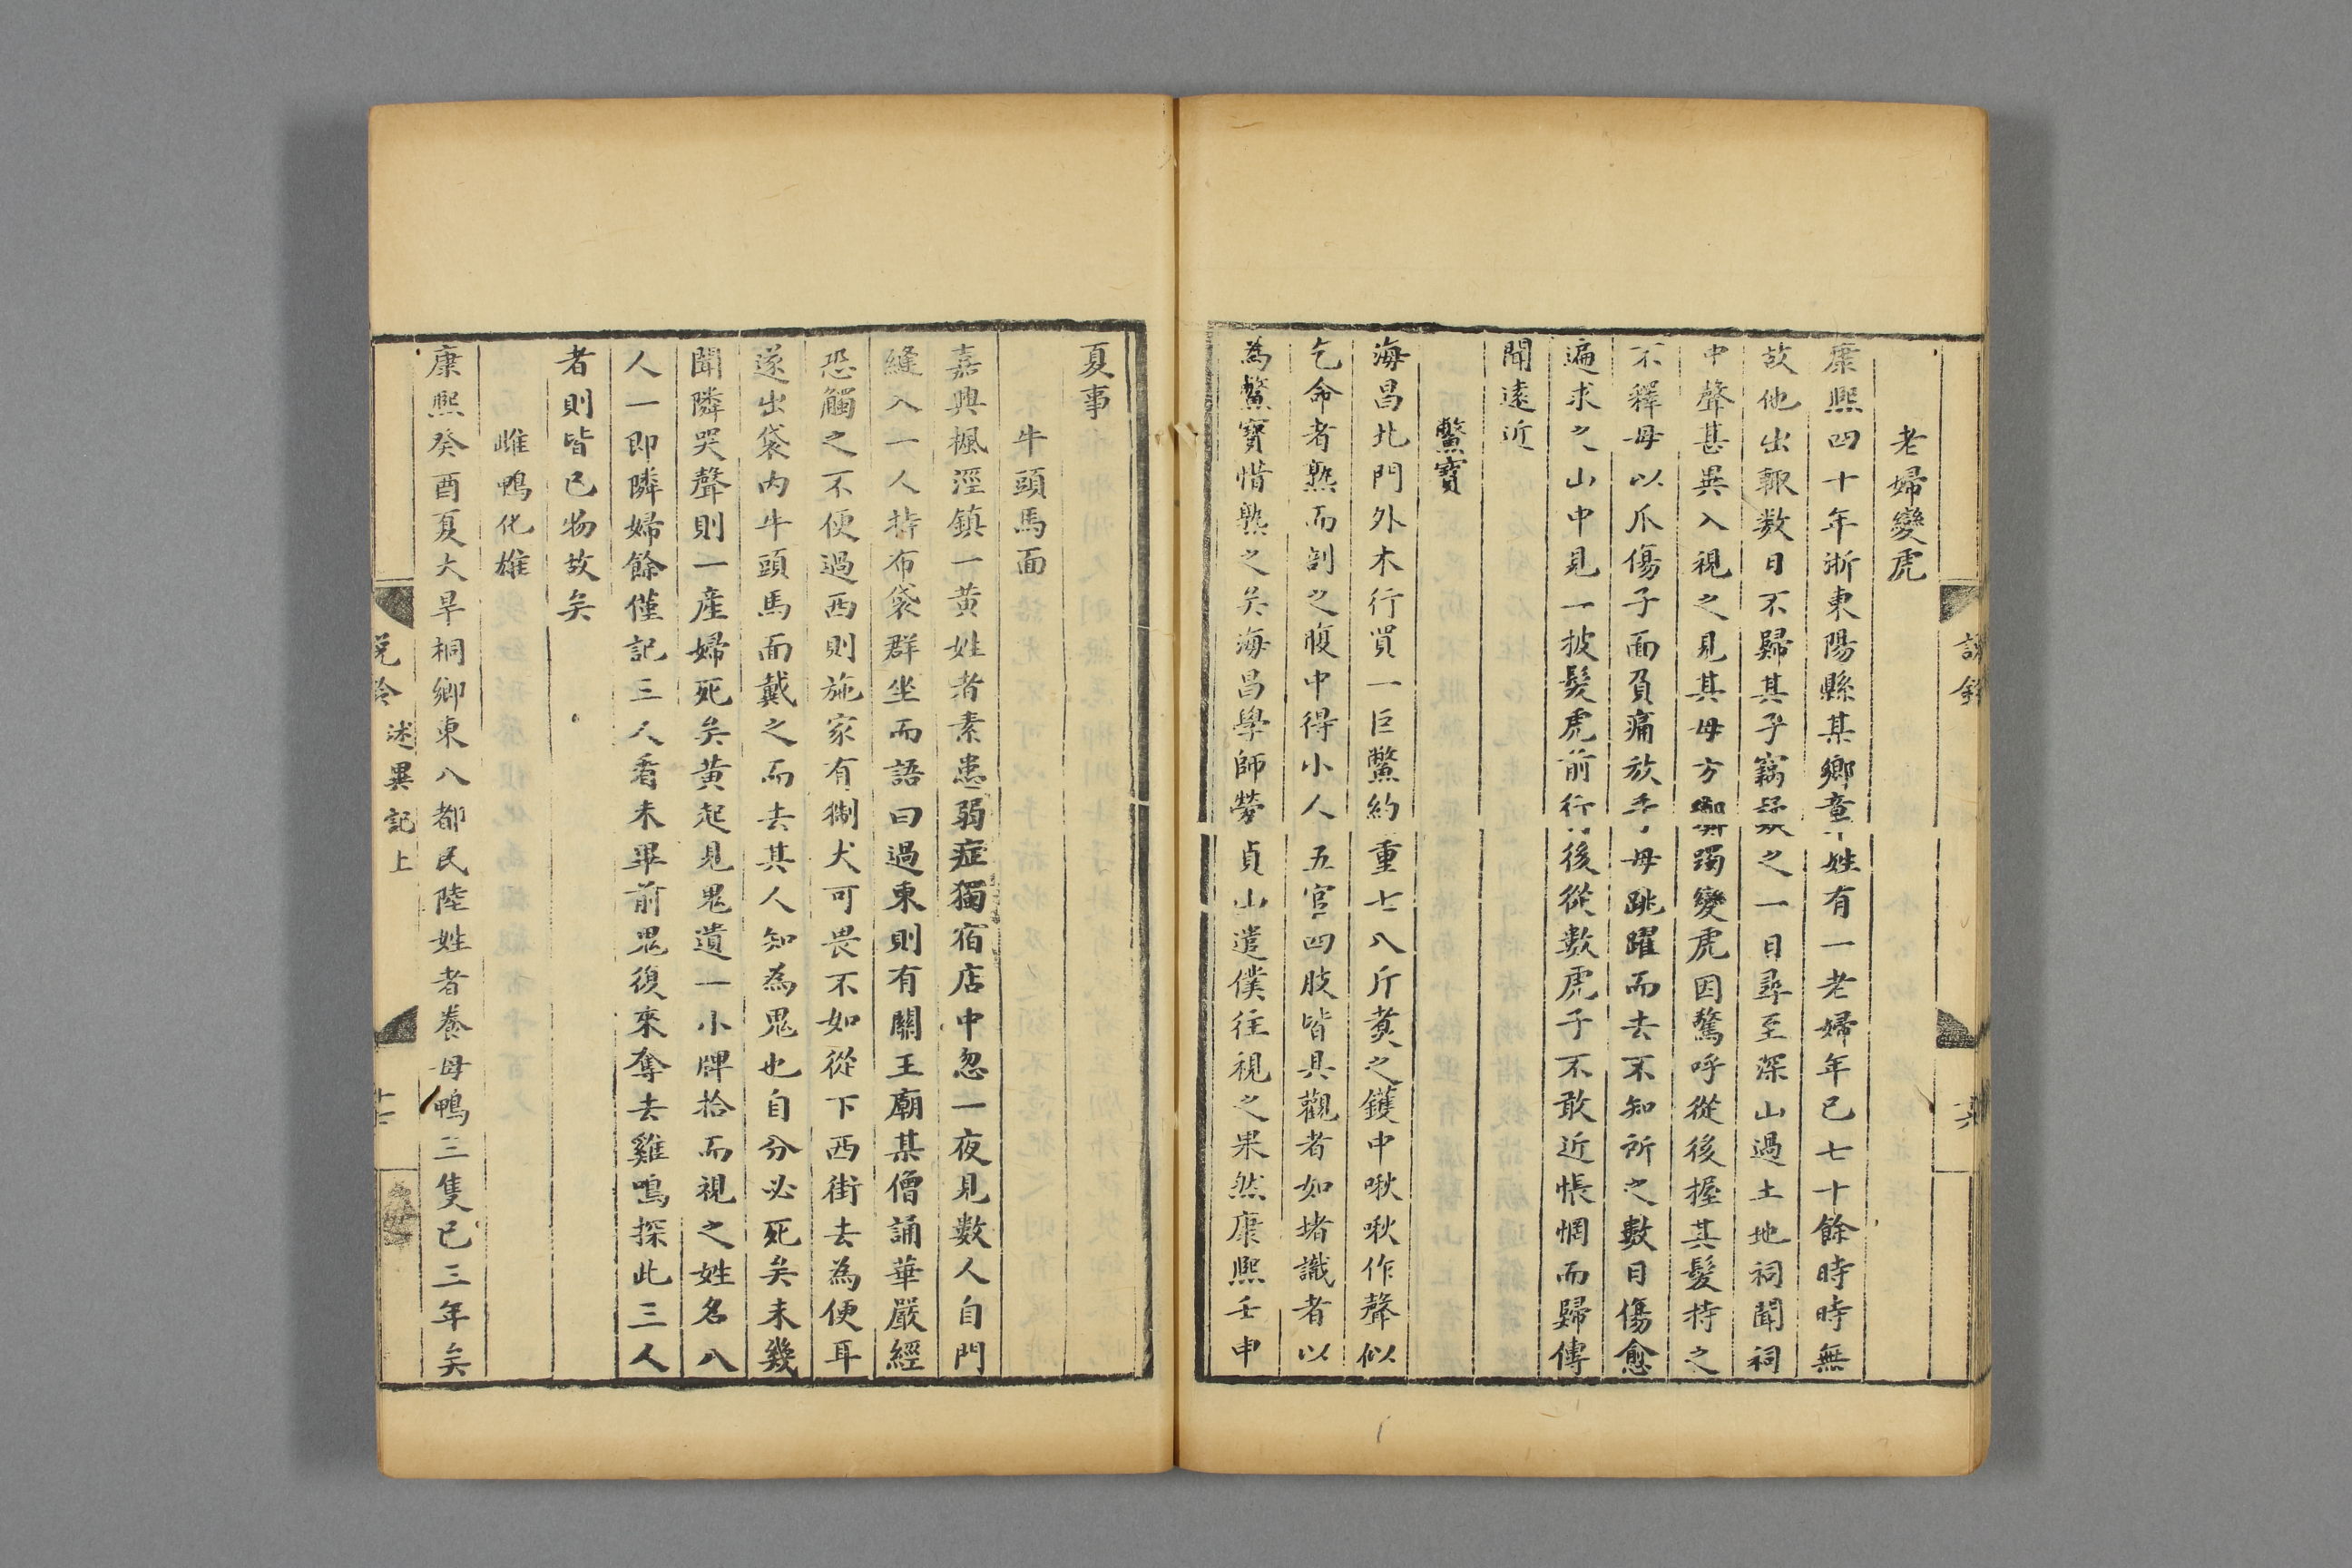 老婦變虎
康熙四十年浙東陽縣某鄉章姓有一老婦年已七十餘時時無
故他出輙數日不歸其子竊疑之一日尋至深山過土地祠聞祠
中聲甚異入視之見其母方蹢躅變虎因驚呼從後握其髮持之
不釋母以爪傷子面負痛放手母跳躍而去不知所之數日傷愈
遍求之山中見一披髮虎前行後從數虎子不敢近悵惘而歸傳
聞遠近
鱉寶
海昌北門外木行買一巨鱉約重七八斤煑之鑊中啾啾作聲似
乞命者熟而剖之腹中得小人五官四肢皆具觀者如堵識者以
為鱉寶惜熟之矣海昌學師勞貞山遣僕往視之果然康熙壬申
夏事
牛頭馬面
嘉興楓涇鎮一黃姓者素患弱症獨宿店中忽一夜見數人自門
縫入一人持布袋群坐而語曰過東則有關王廟某僧誦華嚴經
恐觸之不便過西則施家有猘犬可畏不如從下西街去為便耳
遂出袋內牛頭馬面戴之而去其人知為鬼也自分必死矣未幾
聞隣哭聲則一產婦死矣黃起見鬼遺一小牌拾而視之姓名八
人一即隣婦餘僅記三人看未畢前鬼復來奪去雞鳴探此三人
者則皆已物故矣
雌鴨化雄
康熙癸酉夏大旱桐鄉東八都民陸姓者養母鴨三隻已三年矣
說鈴 述異記上